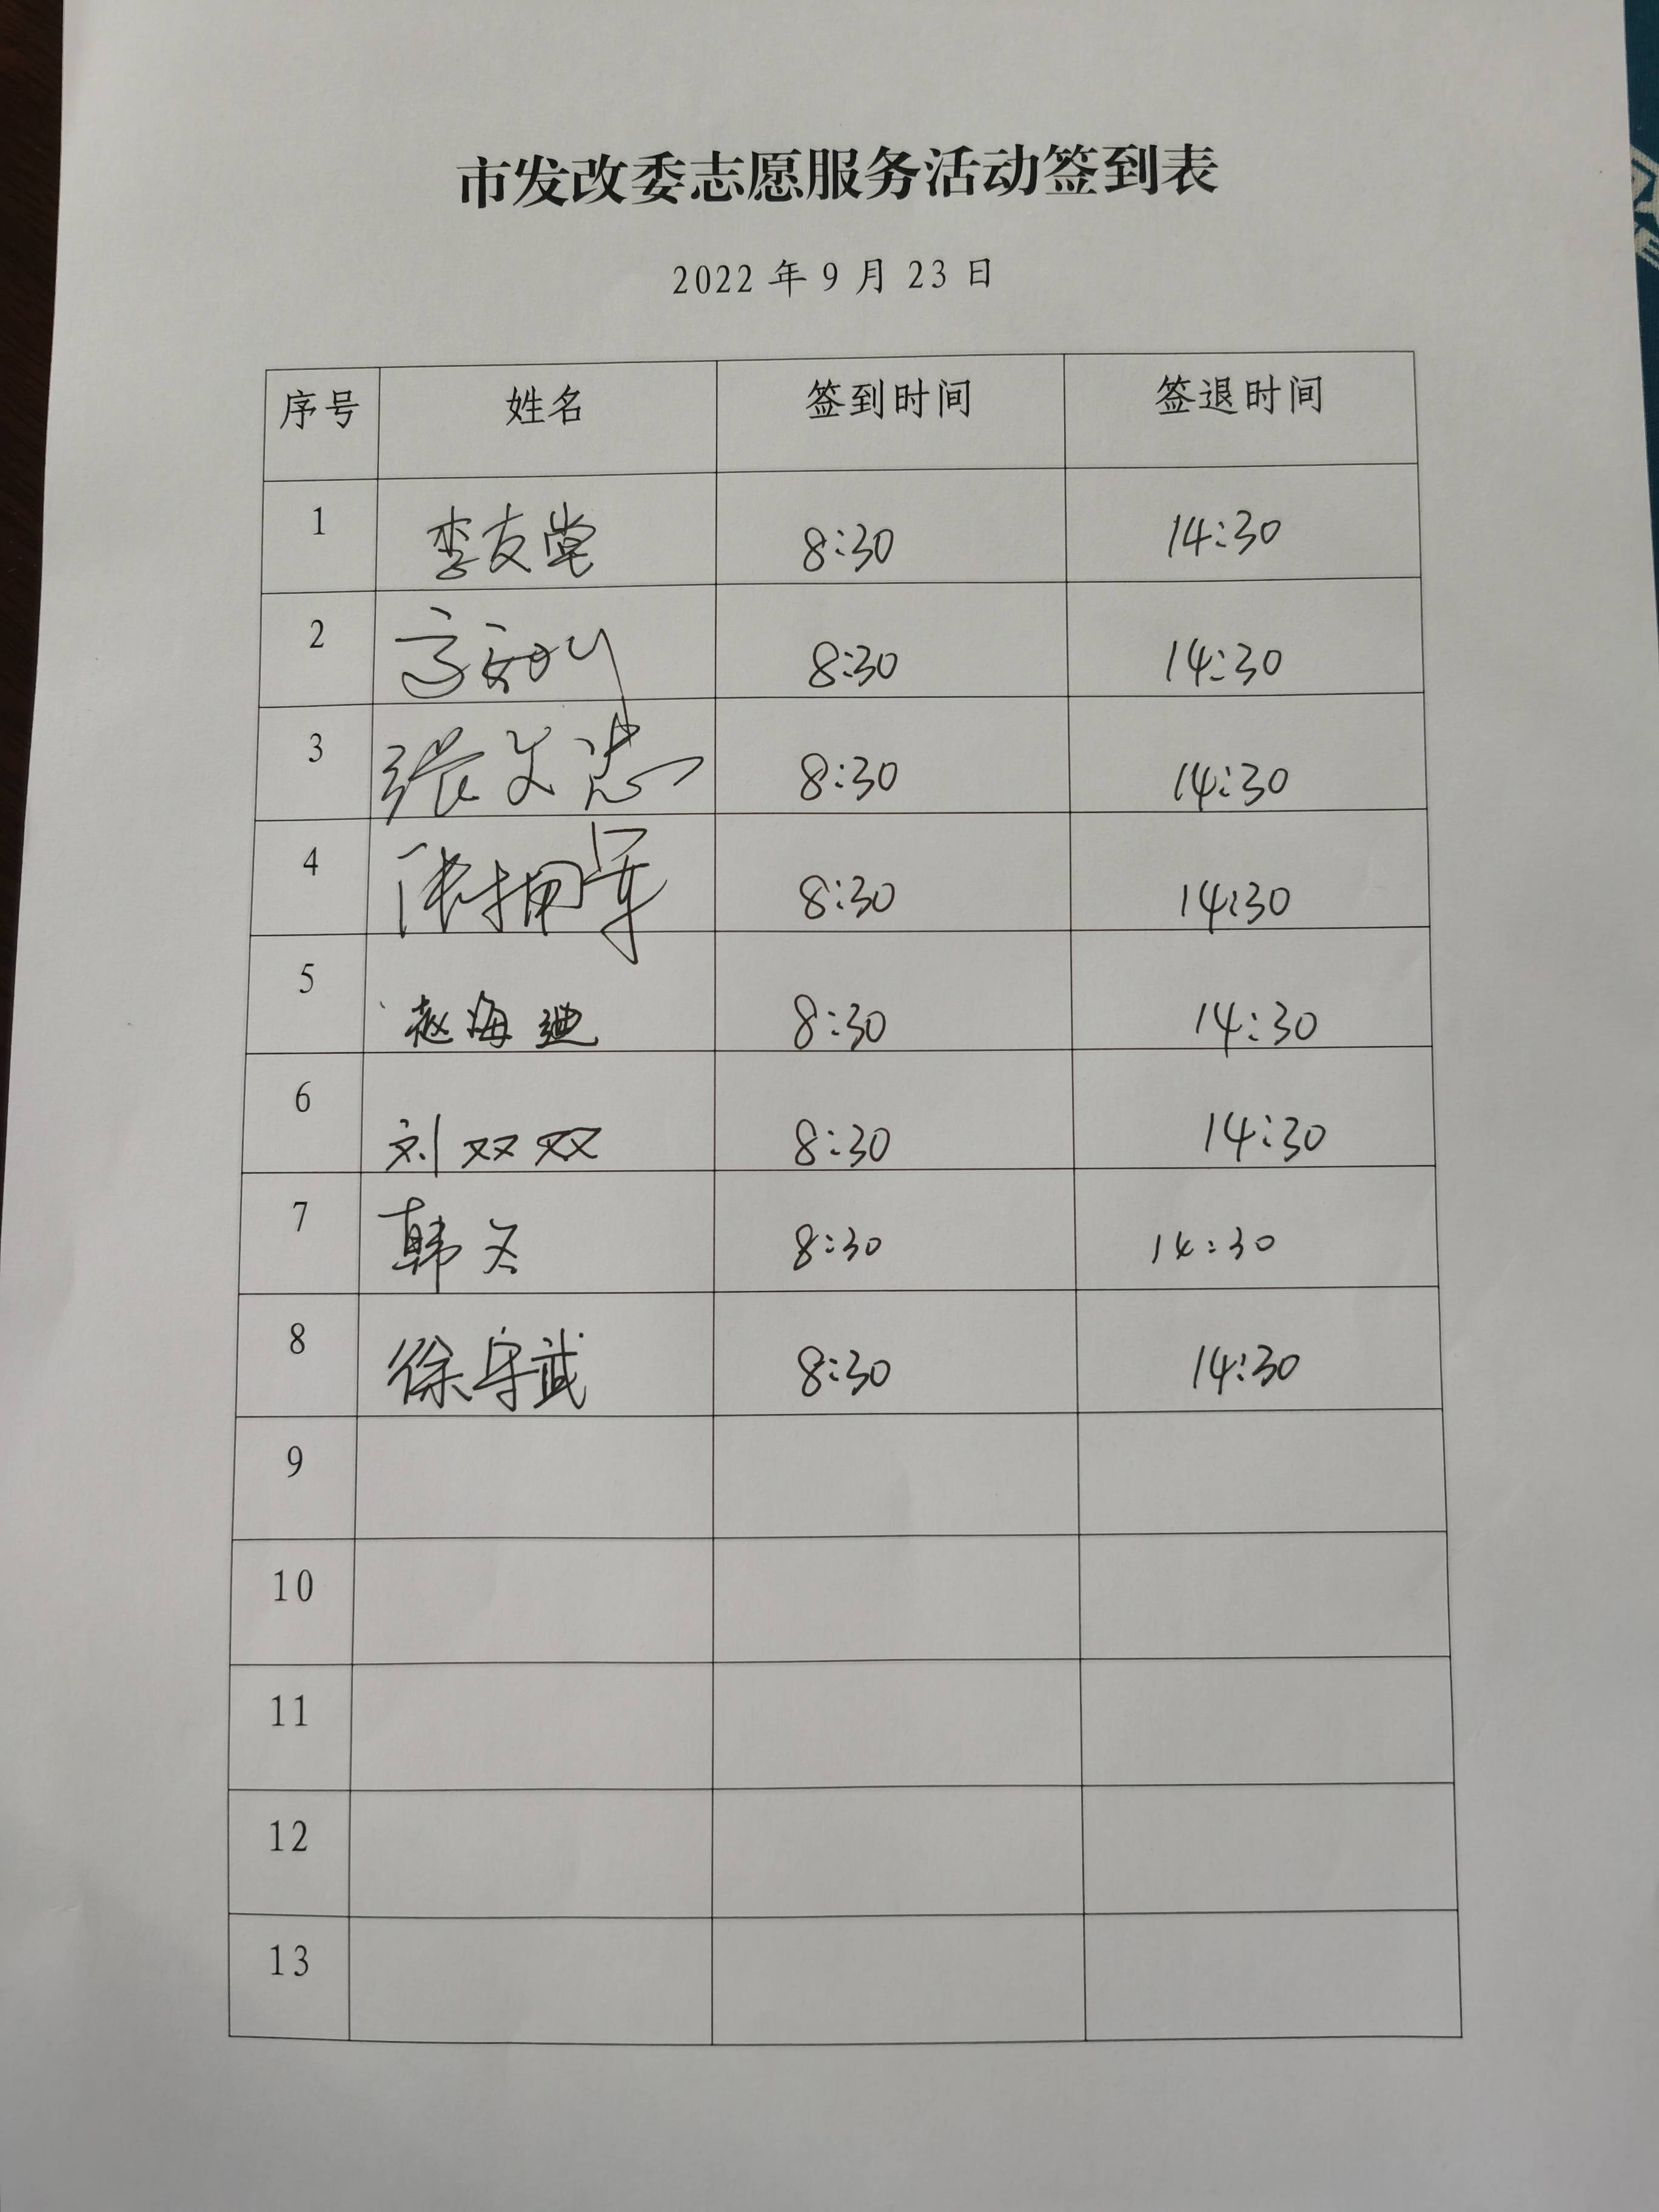 市发改委志愿服务活动签到表
2022年9月23日
序号 姓名 签到时间 签退时间
1 李友堂 8:30 14:30
2 8:30 14:30
3 张文忠 8:30 14:30
4 陈拥军 8:30 14:30
5 赵海迪 8:30 14:30
6 刘双双 8:30 14:30
7 韩 8:30 14:30
8 徐守武 8:30 14:30
9
10
11
12
13